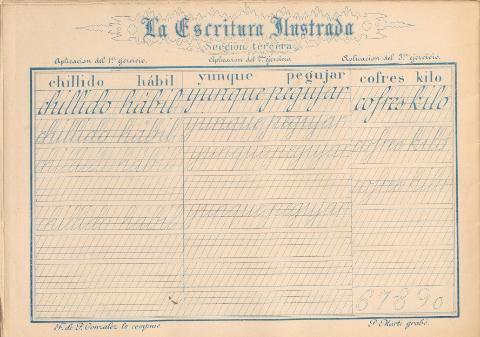 La Escritura Ilustrada
Sección tercera
Aplicación del 1er. ejercicio. Aplicación del 2º. ejercicio. Aplicación del 3er. ejercicio.
chillido hábil yunque pegujar cofres kilo
chillido hábil yunque pegujar cofres kilo
chillido hábil yunque pegujar cofres kilo
chillido hábil yunque pegujar cofres kilo
chillido hábil yunque pegujar
67890
F. de P. Gonzalez lo compuso. P. Marti grabó.